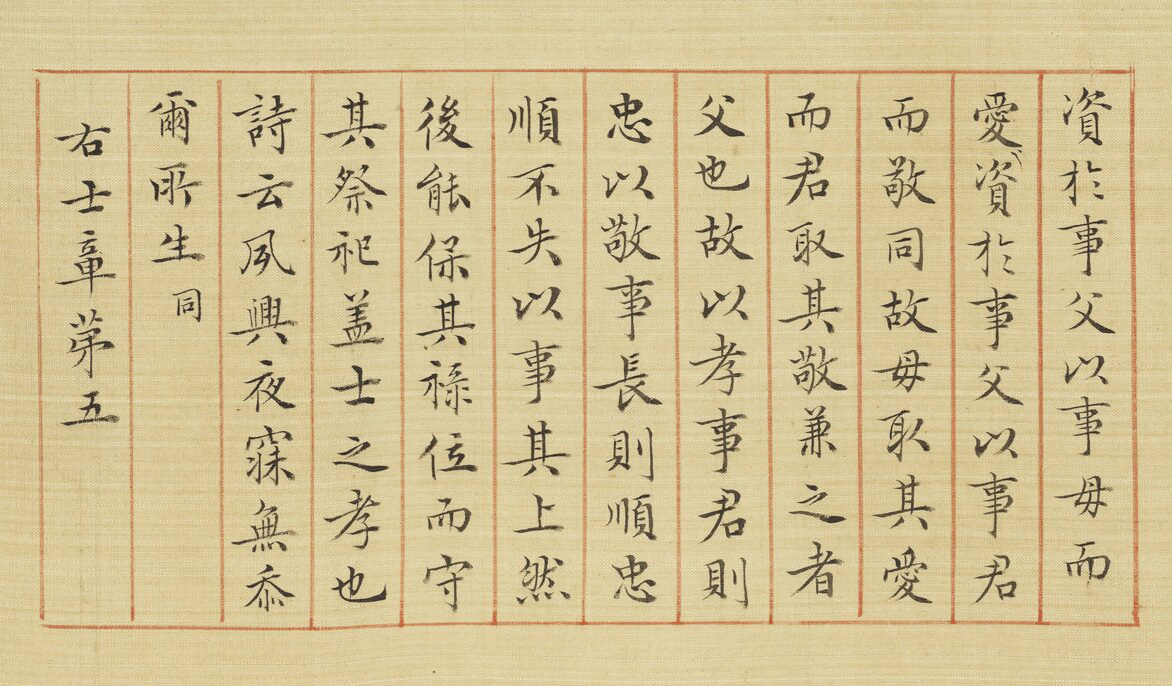 資於事父以事母而
愛資於事父以事君
而敬同故母取其愛
而君取其敬兼之者
父也故以孝事君則
忠以敬事長則順忠
順不失以事其上然
後能保其祿位而守
其祭祀蓋士之孝也
詩云夙興夜寐無忝
爾所生同
右士章苐五